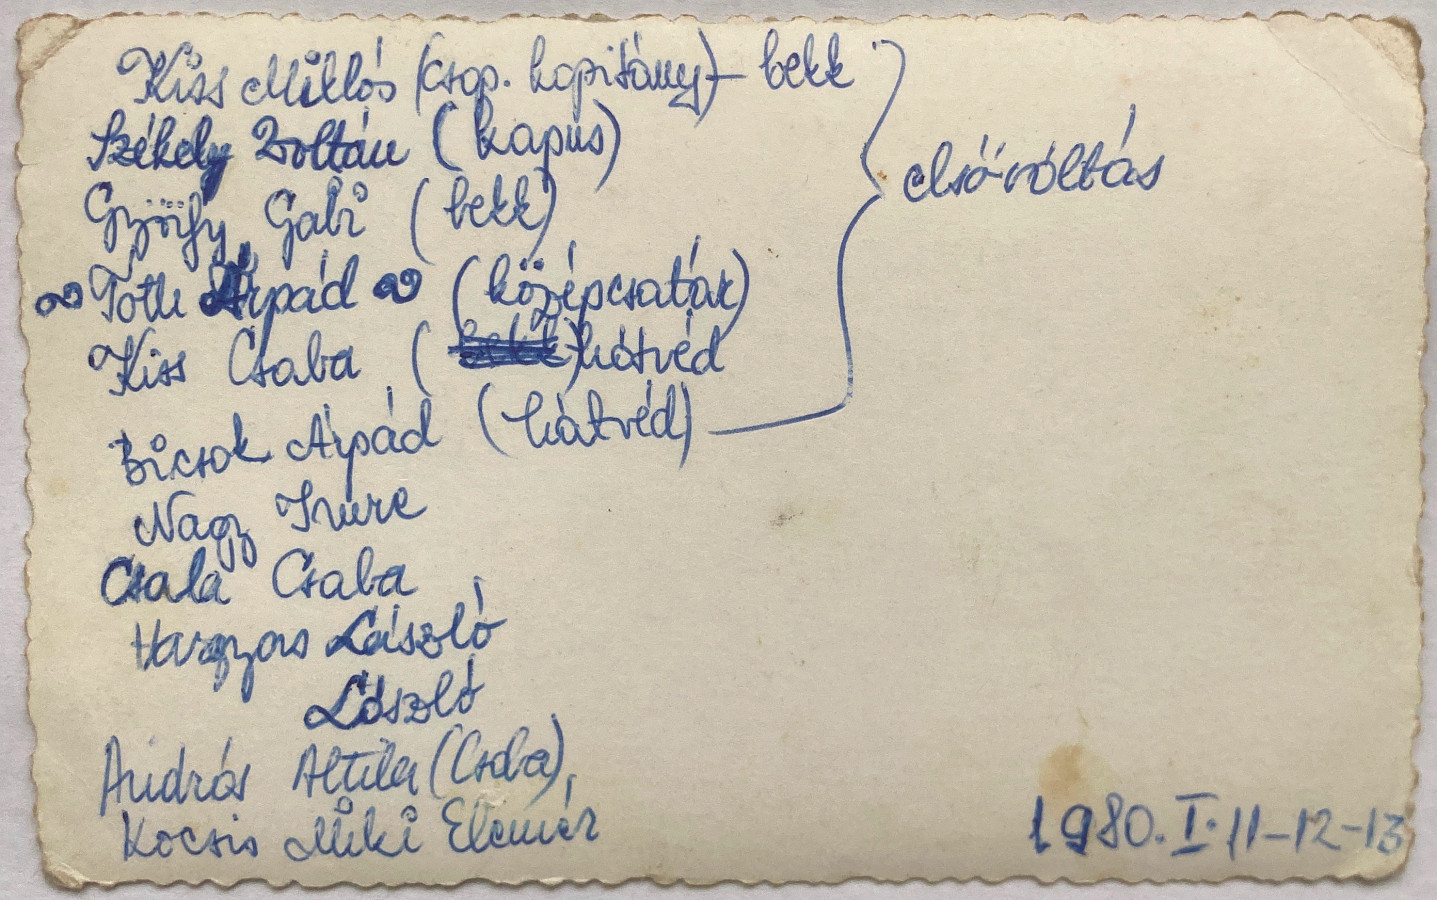 Kiss Miklós (csop. kapitány) – bekk
Székely Zoltán (kapus)
Györfy Gabi (bekk)
Tóth Árpád (középcsatár)
Kiss Csaba ( hátvéd
Bicsok Árpád (hátvéd)
elsőváltás
Nagy Imre
Csala Csaba
Hargyas László
László
András Attila (Csaba),
Kocsis Miki Elemér
1980. I. 11-12-13